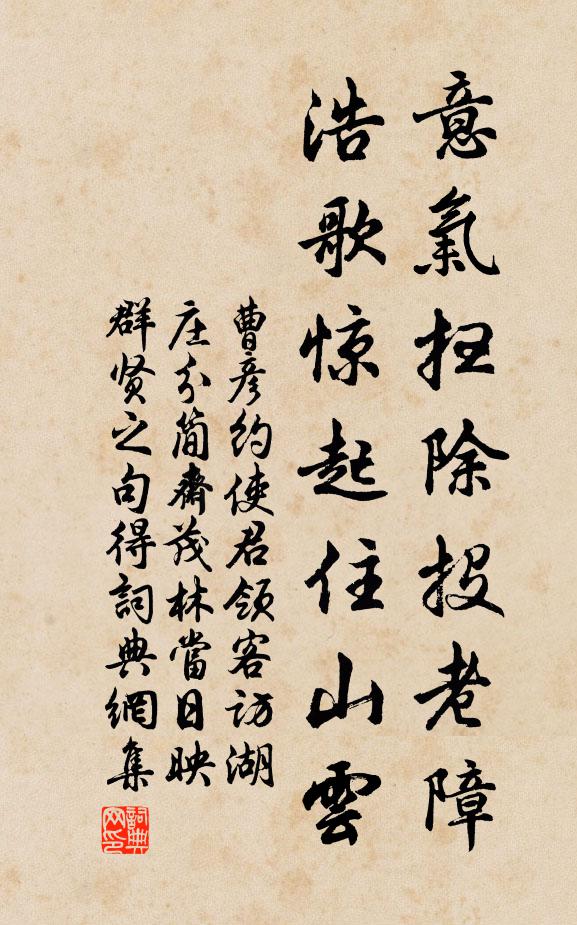 意氣扫除投老障
浩歌惊起住山雲
曹彦约使君领客访湖
庄分简齋茂林當日映
群贤之句得詞典網集
詞典
网印